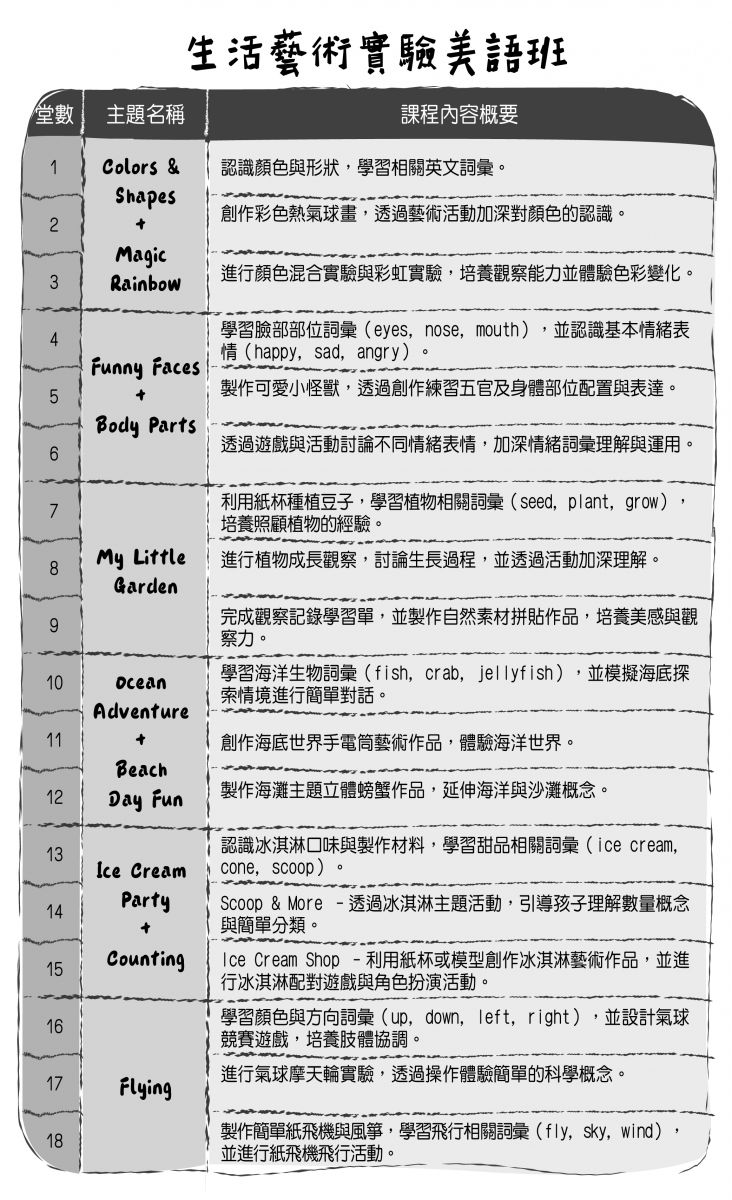 生活藝術實驗美語班
堂數 主題名稱 課程內容概要
Colors &
Shapes
+
Magic
Rainbow
1 認識顏色與形狀，學習相關英文詞彙。
2 創作彩色熱氣球畫，透過藝術活動加深對顏色的認識。
3 進行顏色混合實驗與彩虹實驗，培養觀察能力並體驗色彩變化。
Funny Faces
+
Body Parts
4 學習臉部部位詞彙（eyes, nose, mouth），並認識基本情緒表
情（happy, sad, angry）。
5 製作可愛小怪獸，透過創作練習五官及身體部位配置與表達。
6 透過遊戲與活動討論不同情緒表情，加深情緒詞彙理解與運用。
My Little
Garden
7 利用紙杯種植豆子，學習植物相關詞彙（seed, plant, grow），
培養照顧植物的經驗。
8 進行植物成長觀察，討論生長過程，並透過活動加深理解。
9 完成觀察記錄學習單，並製作自然素材拼貼作品，培養美感與觀
察力。
Ocean
Adventure
+
Beach
Day Fun
10 學習海洋生物詞彙（fish, crab, jellyfish），並模擬海底探
索情境進行簡單對話。
11 創作海底世界手電筒藝術作品，體驗海洋世界。
12 製作海灘主題立體螃蟹作品，延伸海洋與沙灘概念。
Ice Cream
Party
+
Counting
13 認識冰淇淋口味與製作材料，學習甜品相關詞彙（ice cream,
cone, scoop）。
14 Scoop & More －透過冰淇淋主題活動，引導孩子理解數量概念
與簡單分類。
15 Ice Cream Shop －利用紙杯或模型創作冰淇淋藝術作品，並進
行冰淇淋配對遊戲與角色扮演活動。
Flying
16 學習顏色與方向詞彙（up, down, left, right），並設計氣球
競賽遊戲，培養肢體協調。
17 進行氣球摩天輪實驗，透過操作體驗簡單的科學概念。
18 製作簡單紙飛機與風箏，學習飛行相關詞彙（fly, sky, wind），
並進行紙飛機飛行活動。